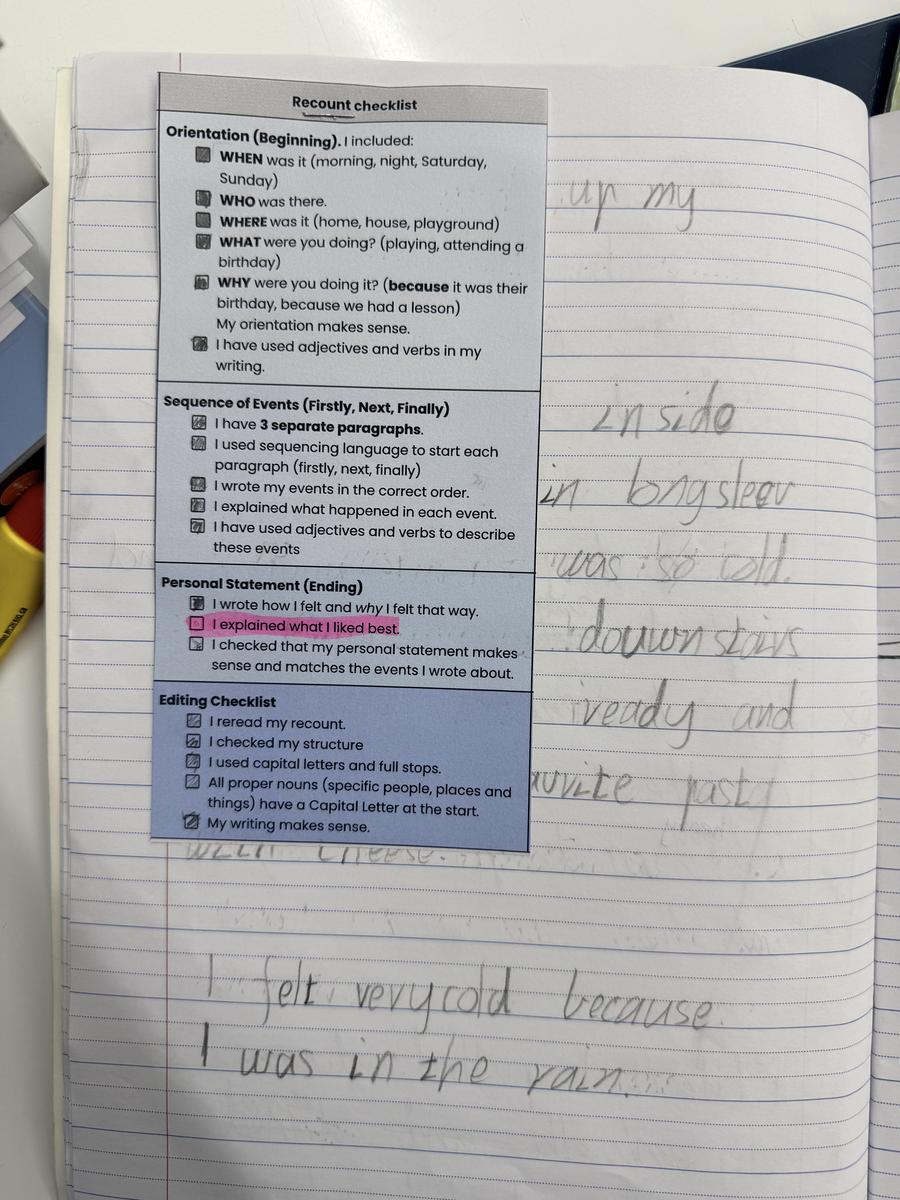 Recount checklist
Orientation (Beginning). I included:
WHEN was it (morning, night, Saturday,
Sunday)
WHO was there.
WHERE was it (home, house, playground)
WHAT were you doing? (playing, attending a
birthday)
WHY were you doing it? (because it was their
birthday, because we had a lesson)
My orientation makes sense.
I have used adjectives and verbs in my
writing.
Sequence of Events (Firstly, Next, Finally)
I have 3 separate paragraphs.
I used sequencing language to start each
paragraph (firstly, next, finally)
I wrote my events in the correct order.
I explained what happened in each event.
I have used adjectives and verbs to describe
these events
Personal Statement (Ending)
I wrote how I felt and why I felt that way.
I explained what I liked best.
I checked that my personal statement makes
sense and matches the events I wrote about.
Editing Checklist
I reread my recount.
I checked my structure
I used capital letters and full stops.
All proper nouns (specific people, places and
things) have a Capital Letter at the start.
My writing makes sense.
up my
inside
in longsleev
was so cold.
douwnstairs
ready and
past
with cheese.
I felt very cold because
I was in the rain.